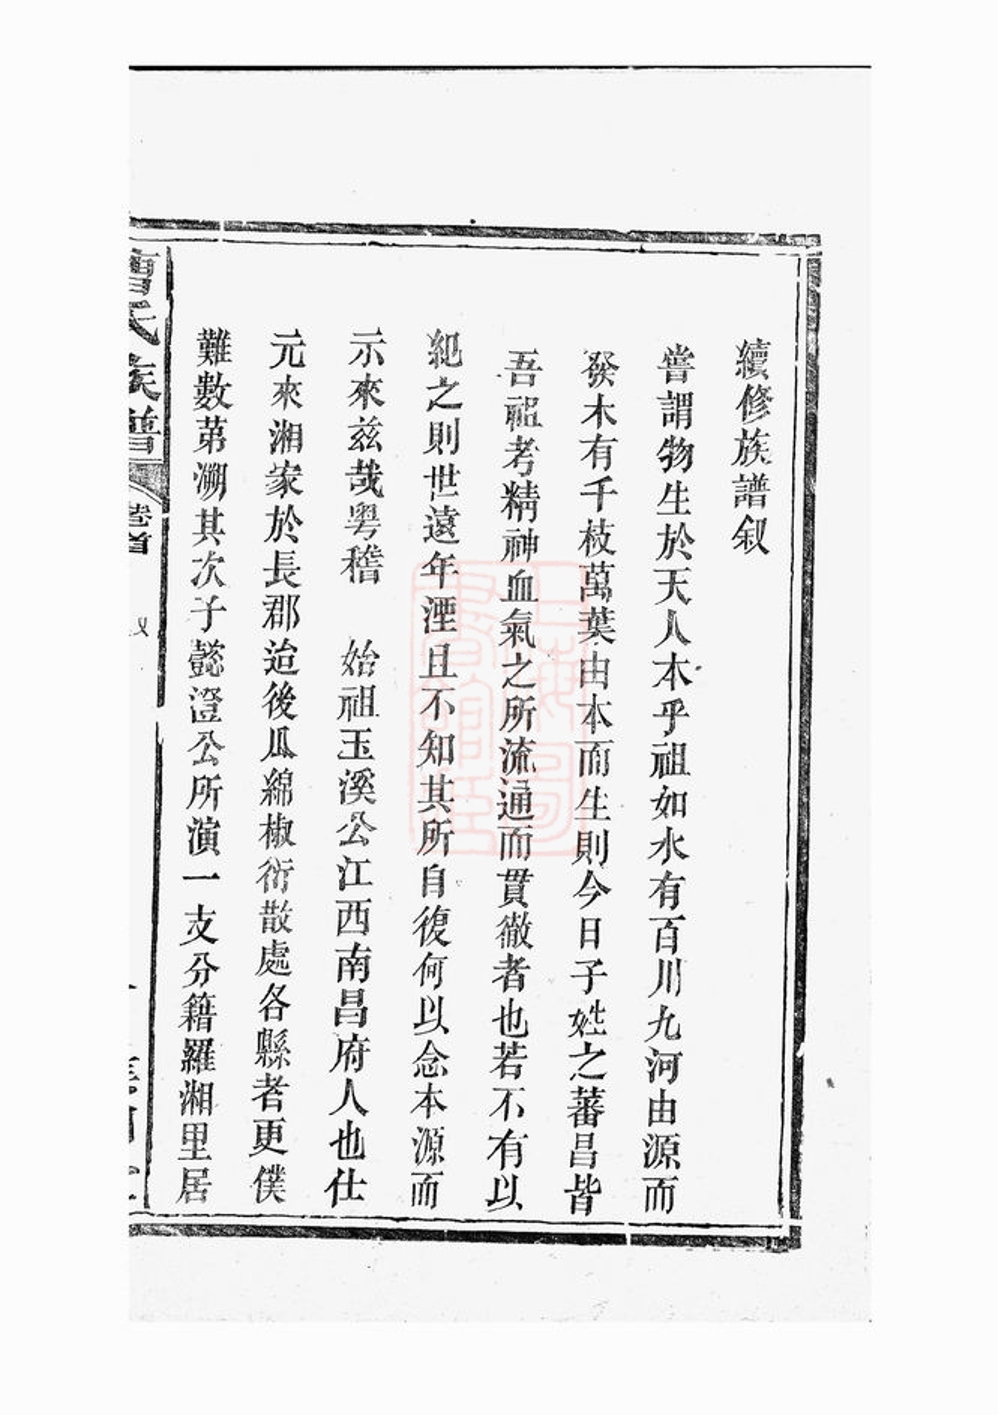 續修族譜叙
嘗謂物生於天人本乎祖如水有百川九河由源而
發木有千枝萬葉由本而生則今日子姓之蕃昌皆
吾祖考精神血氣之所流通而貫徹者也若不有以
紀之則世遠年湮且不知其所自復何以念本源而
示來兹哉粤稽 始祖玉溪公江西南昌府人也仕
元來湘家於長郡迨後瓜綿椒衍散處各縣者更僕
難數苐溯其次子懿澄公所演一支分籍羅湘里居
曹氏族譜 卷首